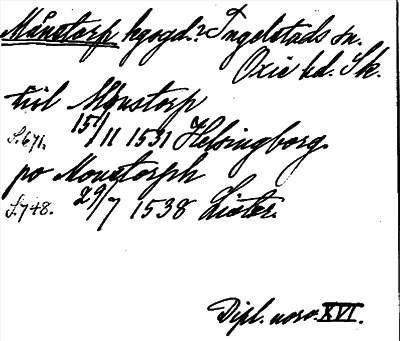 Månstorp hgogd.? Ingelstads sn.
Oxie hd. Sk.
till Monstorp
S.671. 15/11 1531 Helsingborg.
po Monstorph
S.748. 29/7 1538 Lister.
Dipl. norv. XVI.